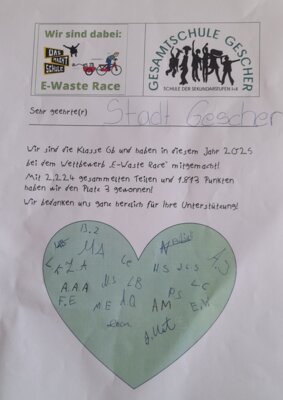 Wir sind dabei:
DAS MACHT SCHULE
E-Waste Race
GESAMTSCHULE GESCHER
SCHULE DER SEKUNDARSTUFEN I+II
Sehr geehrte(r) Stadt Gescher
Wir sind die Klasse 6b und haben in diesem Jahr 2025
bei dem Wettbewerb „E-Waste Race" mitgemacht!
Mit 2.224 gesammelten Teilen und 1.813 Punkten
haben wir den Platz 3 gewonnen!
Wir bedanken uns ganz herzlich für Ihre Unterstützung!
A.A.A
F.E
M.E
AM
E.M